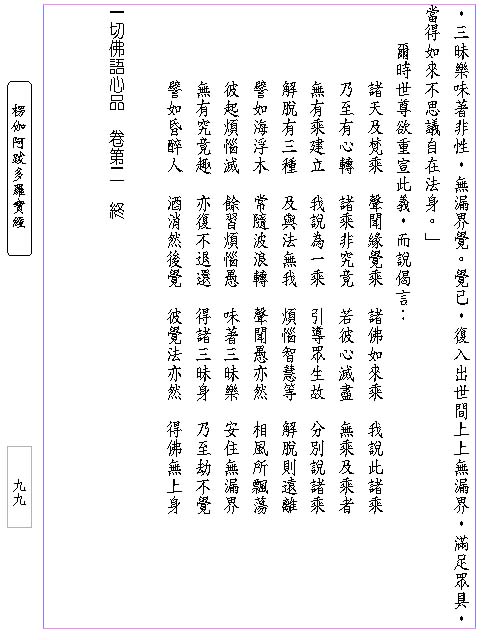 ．三昧樂味著非性．無漏界覺。覺已．復入出世間上上無漏界．滿足眾具．
當得如來不思議自在法身。」
爾時世尊欲重宣此義．而說偈言：
諸天及梵乘　聲聞緣覺乘　諸佛如來乘　我說此諸乘
乃至有心轉　諸乘非究竟　若彼心滅盡　無乘及乘者
無有乘建立　我說為一乘　引導眾生故　分別說諸乘
解脫有三種　及與法無我　煩惱智慧等　解脫則遠離
譬如海浮木　常隨波浪轉　聲聞愚亦然　相風所飄蕩
彼起煩惱滅　餘習煩惱愚　味著三昧樂　安住無漏界
無有究竟趣　亦復不退還　得諸三昧身　乃至劫不覺
譬如昏醉人　酒消然後覺　彼覺法亦然　得佛無上身
一切佛語心品　卷第二　終
楞伽阿跋多羅寶經
九九